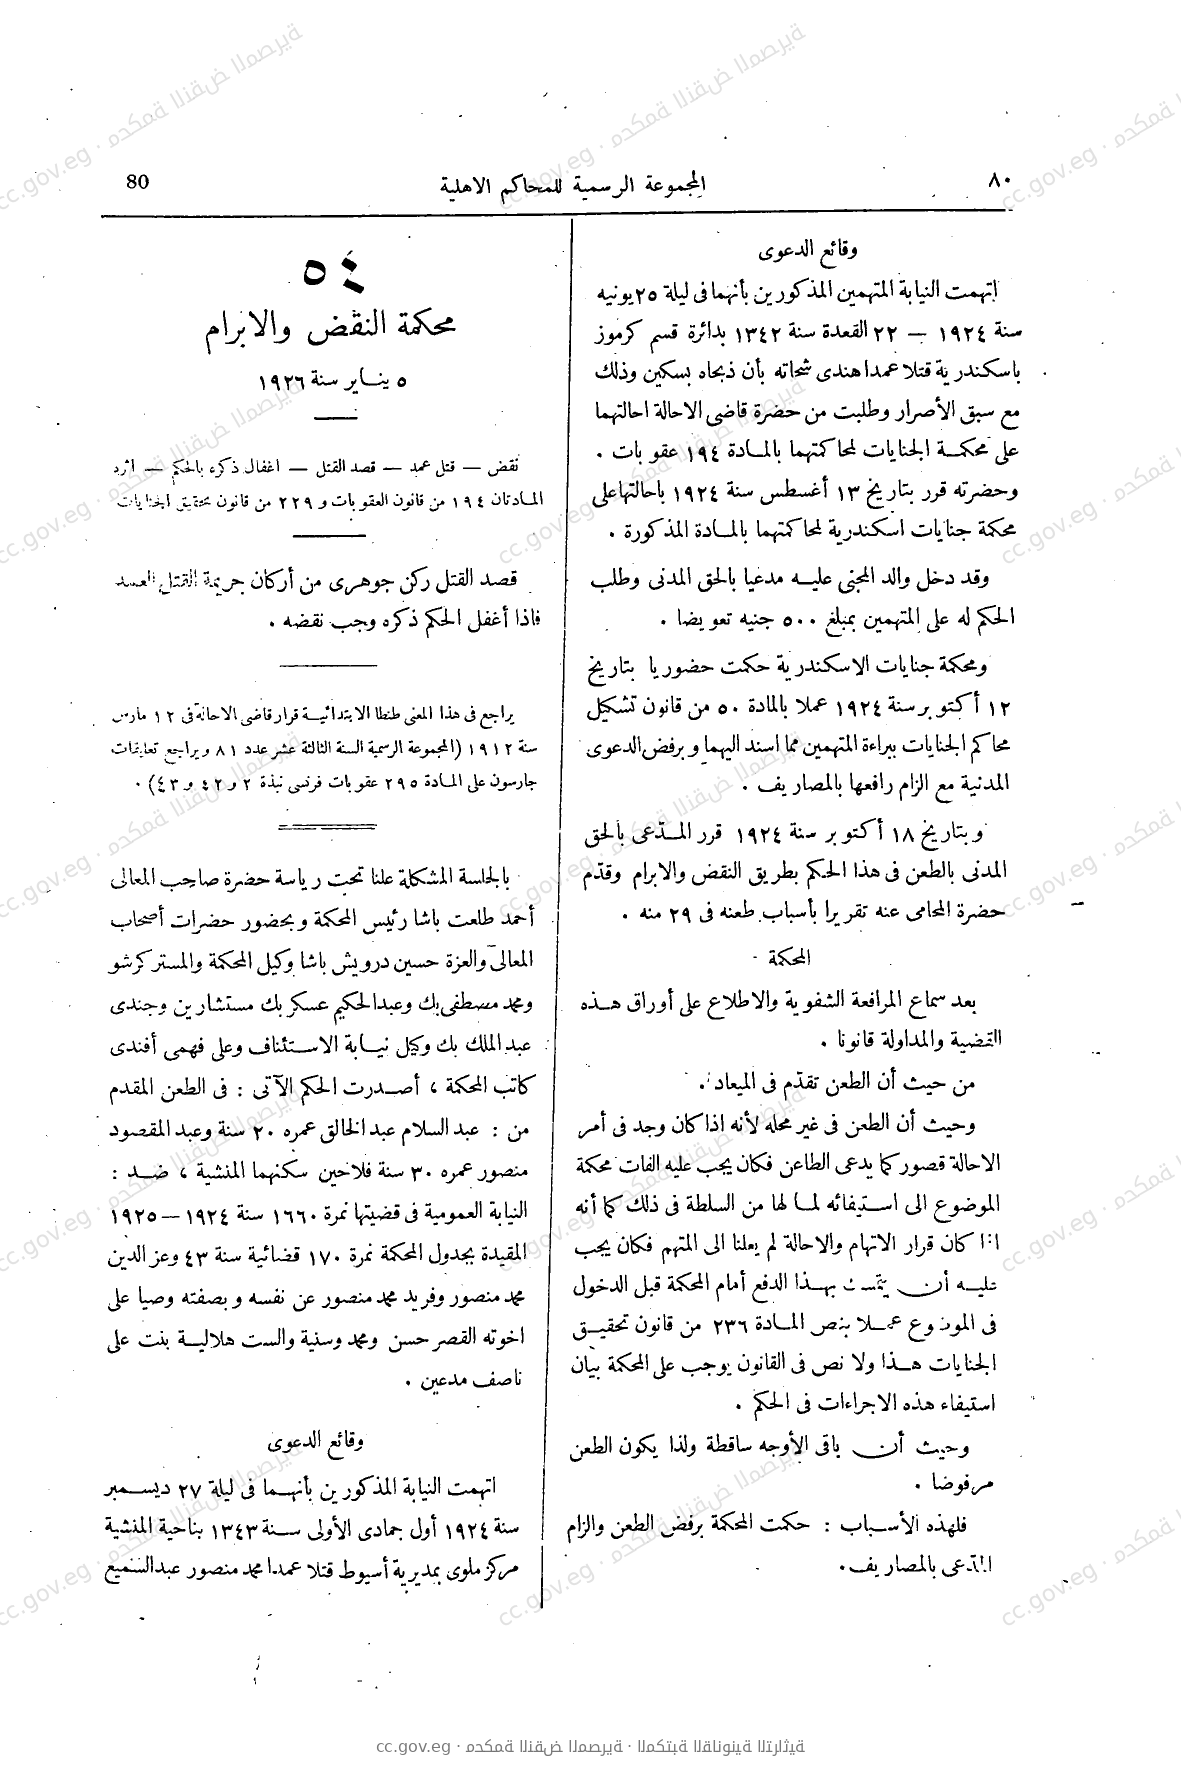 ٨٠
المجموعة الرسمية للمحاكم الاهلية
80
وقائع الدعوى
اتهمت النيابة المتهمين المذكورين بأنهما فى ليلة ٢٥ يونيه
سنة ١٩٢٤ — ٢٢ القعدة سنة ١٣٤٢ بدائرة قسم كرموز
باسكندرية قتلا عمدا هندى شحاته بأن ذبحاه بسكين وذلك
مع سبق الأصرار وطلبت من حضرة قاضى الاحالة احالتهما
على محكمة الجنايات لمحاكمتهما بالمادة ١٩٤ عقوبات .
وحضرته قرر بتاريخ ١٣ أغسطس سنة ١٩٢٤ باحالتها على
محكمة جنايات اسكندرية لمحاكمتهما بالمادة المذكورة .
وقد دخل والد المجنى عليه مدعيا بالحق المدنى وطلب
الحكم له على المتهمين بمبلغ ٥٠٠ جنيه تعويضا .
ومحكمة جنايات الاسكندرية حكمت حضوريا بتاريخ
١٢ أكتوبر سنة ١٩٢٤ عملا بالمادة ٥٠ من قانون تشكيل
محاكم الجنايات ببراءة المتهمين مما اسند اليهما وبرفض الدعوى
المدنية مع الزام رافعها بالمصاريف .
وبتاريخ ١٨ أكتوبر سنة ١٩٢٤ قرر المدّعى بالحق
المدنى بالطعن فى هذا الحكم بطريق النقض والابرام وقدّم
حضرة المحامى عنه تقريرا بأسباب طعنه فى ٢٩ منه .
المحكمة
بعد سماع المرافعة الشفوية والاطلاع على أوراق هذه
القضية والمداولة قانونا .
من حيث أن الطعن تقدّم فى الميعاد .
وحيث أن الطعن فى غير محله لأنه اذا كان وجد فى أمر
الاحالة قصور كما يدعى الطاعن فكان يجب عليه الفات محكمة
الموضوع الى استيفائه لما لها من السلطة فى ذلك كما أنه
اذا كان قرار الاتهام والاحالة لم يعلنا الى المتهم فكان يجب
عليه أن يتمسك بهذا الدفع أمام المحكمة قبل الدخول
فى الموضوع عملا بنص المادة ٢٣٦ من قانون تحقيق
الجنايات هذا ولا نص فى القانون يوجب على المحكمة بيان
استيفاء هذه الاجراءات فى الحكم .
وحيث أن باقى الأوجه ساقطة ولذا يكون الطعن
مرفوضا .
فلهذه الأسباب : حكمت المحكمة برفض الطعن والزام
المدّعى بالمصاريف .
٥٤
محكمة النقض والابرام
٥ يناير سنة ١٩٢٦
نقض — قتل عمد — قصد القتل — اغفال ذكره بالحكم — اثره
المادتان ١٩٤ من قانون العقوبات و ٢٢٩ من قانون تحقيق الجنايات
قصد القتل ركن جوهرى من أركان جريمة القتل العمد
فاذا أغفل الحكم ذكره وجب نقضه .
يراجع فى هذا المعنى طنطا الابتدائية قرار قاضى الاحالة فى ١٢ مارس
سنة ١٩١٢ (المجموعة الرسمية السنة الثالثة عشر عدد ٨١ ويراجع تعليقات
جارسون على المادة ٢٩٥ عقوبات فرنسى نبذة ٢ و ٤٢ و ٤٣) .
بالجلسة المشكلة علنا تحت رياسة حضرة صاحب المعالى
أحمد طلعت باشا رئيس المحكمة وبحضور حضرات أصحاب
المعالى والعزة حسين درويش باشا وكيل المحكمة والمستر كرشو
ومحمد مصطفى بك وعبدالحكيم عسكر بك مستشارين وجندى
عبد الملك بك وكيل نيابة الاستئناف وعلى فهمى أفندى
كاتب المحكمة ، أصدرت الحكم الآتى : فى الطعن المقدم
من : عبد السلام عبد الخالق عمره ٢٠ سنة وعبد المقصود
منصور عمره ٣٠ سنة فلاحين سكنهما المنشية ، ضد :
النيابة العمومية فى قضيتها نمرة ١٦٦٠ سنة ١٩٢٤ — ١٩٢٥
المقيدة بجدول المحكمة نمرة ١٧٠ قضائية سنة ٤٣ وعز الدين
محمد منصور وفريد محمد منصور عن نفسه وبصفته وصيا على
اخوته القصر حسن ومحمد وسنية والست هلالية بنت على
ناصف مدعين .
وقائع الدعوى
اتهمت النيابة المذكورين بأنهما فى ليلة ٢٧ ديسمبر
سنة ١٩٢٤ أول جمادى الأولى سنة ١٣٤٣ بناحية المنشية
مركز ملوى بمديرية أسيوط قتلا عمدا محمد منصور عبدالسميع
cc.gov.eg · محكمة النقض المصرية · المكتبة القانونية التراثية